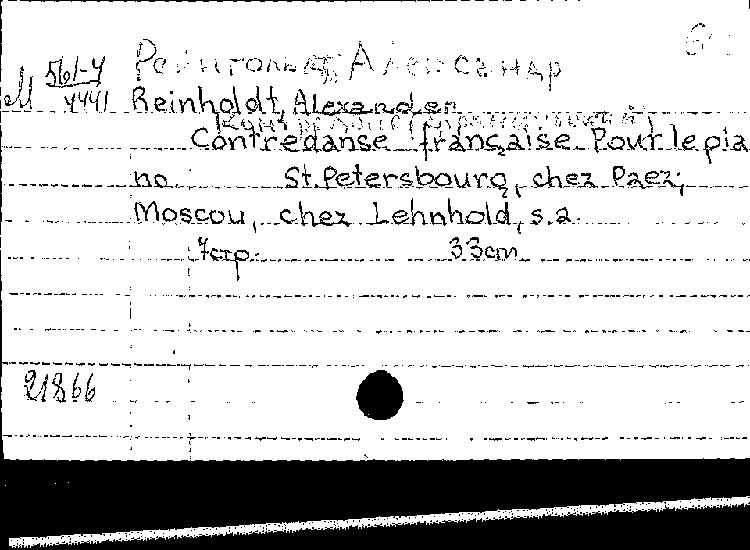 Рейнгольдт, Александр
М 561-4
4441
Reinholdt, Alexander
Contredanse française Pour le pia
no. St.Petersbourg, chez Paez;
Moscou, chez Lehnhold, s.a.
7стр. 33cm
21866